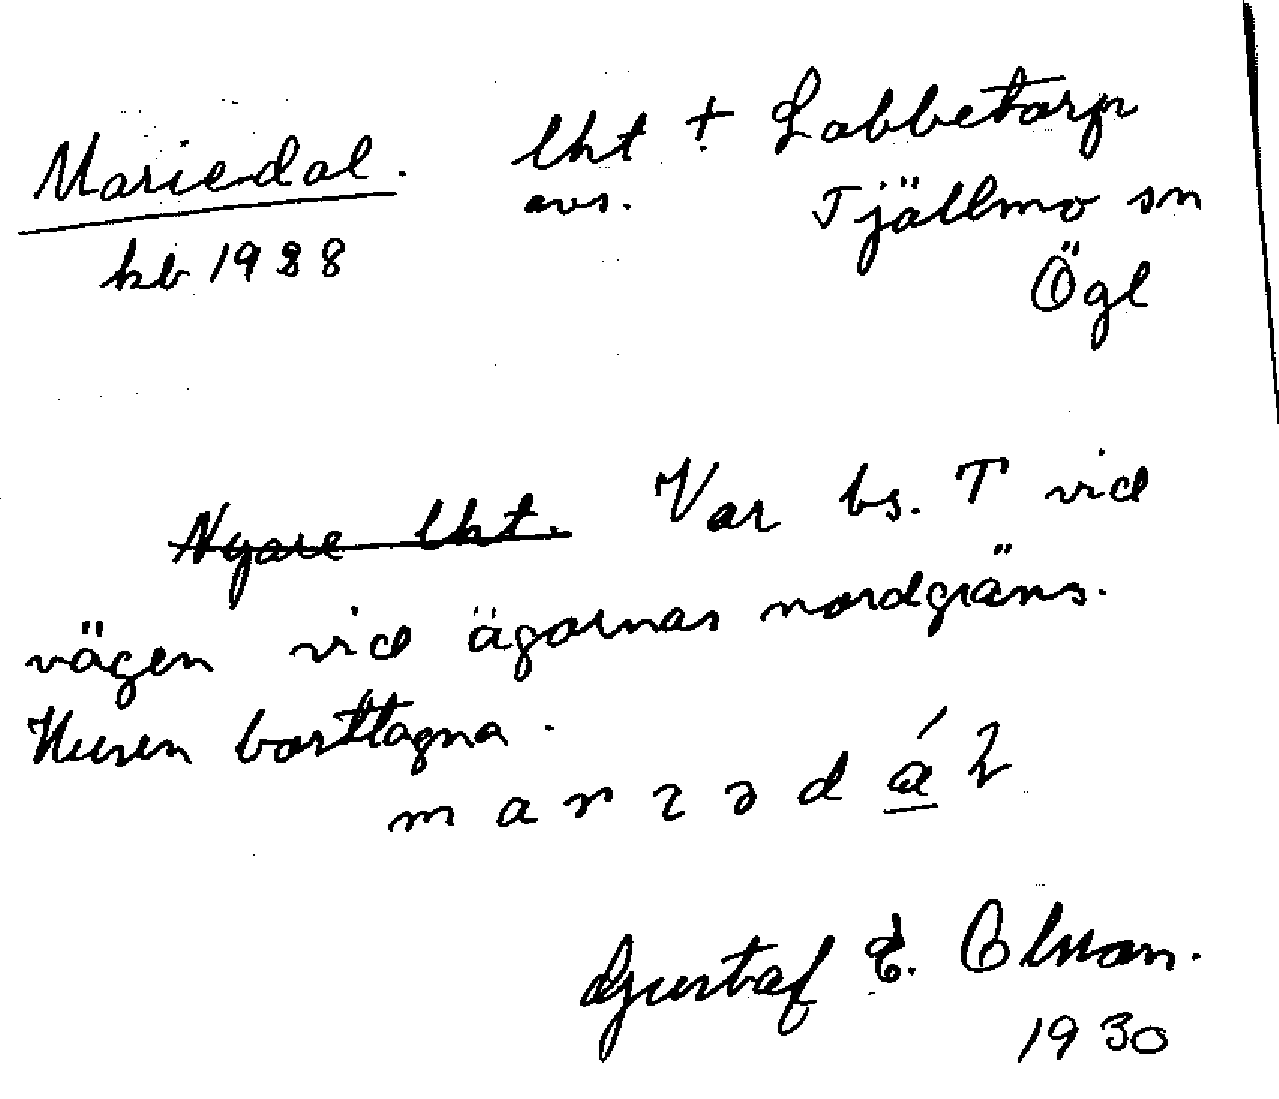 Mariedal. lht + Labbetorp
avs. Tjällmo sn
kb 1928 Ögl
Nyare lht. Var bs. T vid
vägen vid ägornas nordgräns.
Husen borttagna.
m a r ɩ ə d á
Gustaf E. Olsson.
1930